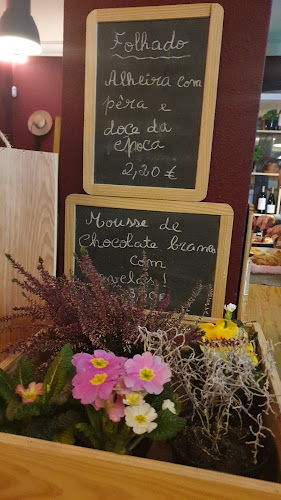 Folhado
Alheira com
pêra e
doce da
época
2,20 €
Mousse de
Chocolate branco
com